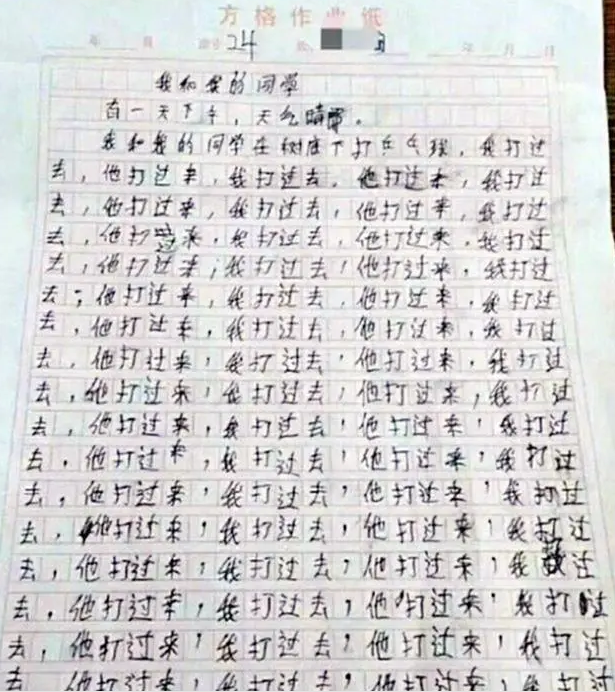 方格作业纸
年 月 24 年 月 日
我和我的同学
有一天下午，天气晴。
我和我的同学在树底下打乒乓球，我打过
去，他打过来，我打过去，他打过来，我打过
去，他打过来，我打过去，他打过来，我打过
去，他打过来，我打过去，他打过来，我打过
去，他打过来，我打过去，他打过来，我打过
去，他打过来，我打过去，他打过来，我打过
去，他打过来，我打过去，他打过来，我打过
去，他打过来，我打过去，他打过来，我打过
去，他打过来，我打过去，他打过来，我打过
去，他打过来，我打过去，他打过来，我打过
去，他打过来，我打过去，他打过来，我打过
去，他打过来，我打过去，他打过来，我打过
去，他打过来，我打过去，他打过来，我打过
去，他打过来，我打过去，他打过来，我过
去，他打过来，我打过去，他打过来，我打过
去，他打过来，我打过去，他打过来，我打过
去，他打过来，我打过去，他打过来，我打过